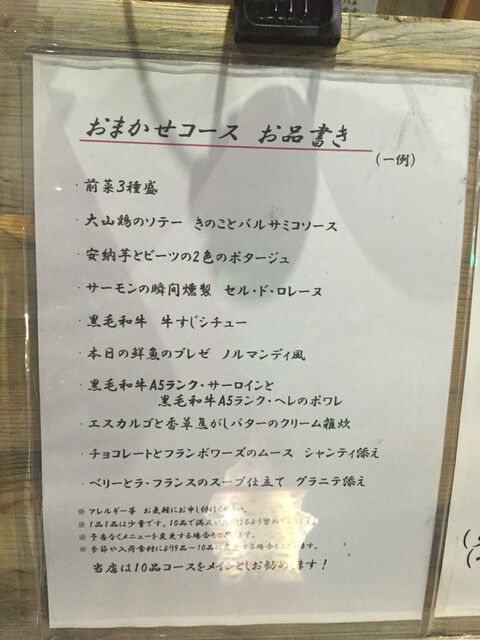 おまかせコース お品書き
(一例)
・前菜3種盛
・大山鶏のソテー きのことバルサミコソース
・安納芋とビーツの2色のポタージュ
・サーモンの瞬間燻製 セル・ド・ロレーヌ
・黒毛和牛 牛すじシチュー
・本日の鮮魚のブレゼ ノルマンディ風
・黒毛和牛A5ランク・サーロインと
黒毛和牛A5ランク・ヘレのポワレ
・エスカルゴと香草焦がしバターのクリーム雑炊
・チョコレートとフランボワーズのムース シャンティ添え
・ベリーとラ・フランスのスープ仕立て グラニテ添え
※アレルギー等 お気軽にお申し付けください。
※1品1品は少量です。10品で満足いただけるよう
※予告なくメニューを変更する場合もございます。
※季節や入荷食材により9品～10品に変更する場合もございます。
当店は10品コースをメインとしお勧めます!